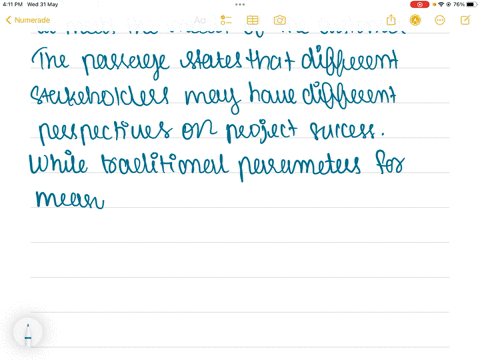 4:11 PM Wed 31 May
76%
Numerade
Aa
The passage states that different
stakeholders may have different
perspectives on project success.
While traditional parameters for
meas